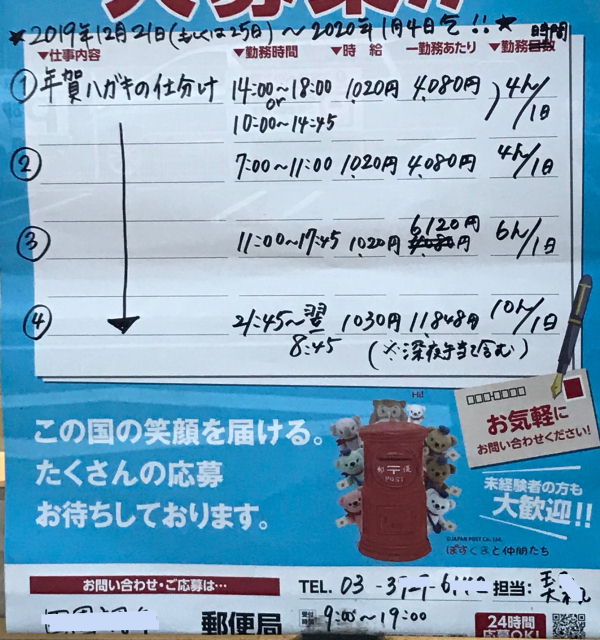 ★2019年12月21日(もしくは25日)〜2020年1月4日迄!!★
▼仕事内容 ▼勤務時間 ▼時 給 一勤務あたり ▼勤務時間
①年賀ハガキの仕分け 14:00〜18:00 1,020円 4,080円 4h/1日
or
10:00〜14:45
② 7:00〜11:00 1,020円 4,080円 4h/1日
③ 11:00〜17:45 1,020円 6,120円 6h/1日
④ 21:45〜翌8:45 1030円 11,848円 10h/1日
(※深夜手当て含む)
Hi!
お気軽に
お問い合わせください!
この国の笑顔を届ける。
たくさんの応募
お待ちしております。
郵〒便
POST
未経験者の方も
大歓迎!!
©JAPAN POST Co., Ltd.
ぽすくまと仲間たち
お問い合わせ・ご応募は… TEL. 03 担当:
郵便局 受付時間 9:00〜19:00
24時間
応募OK!